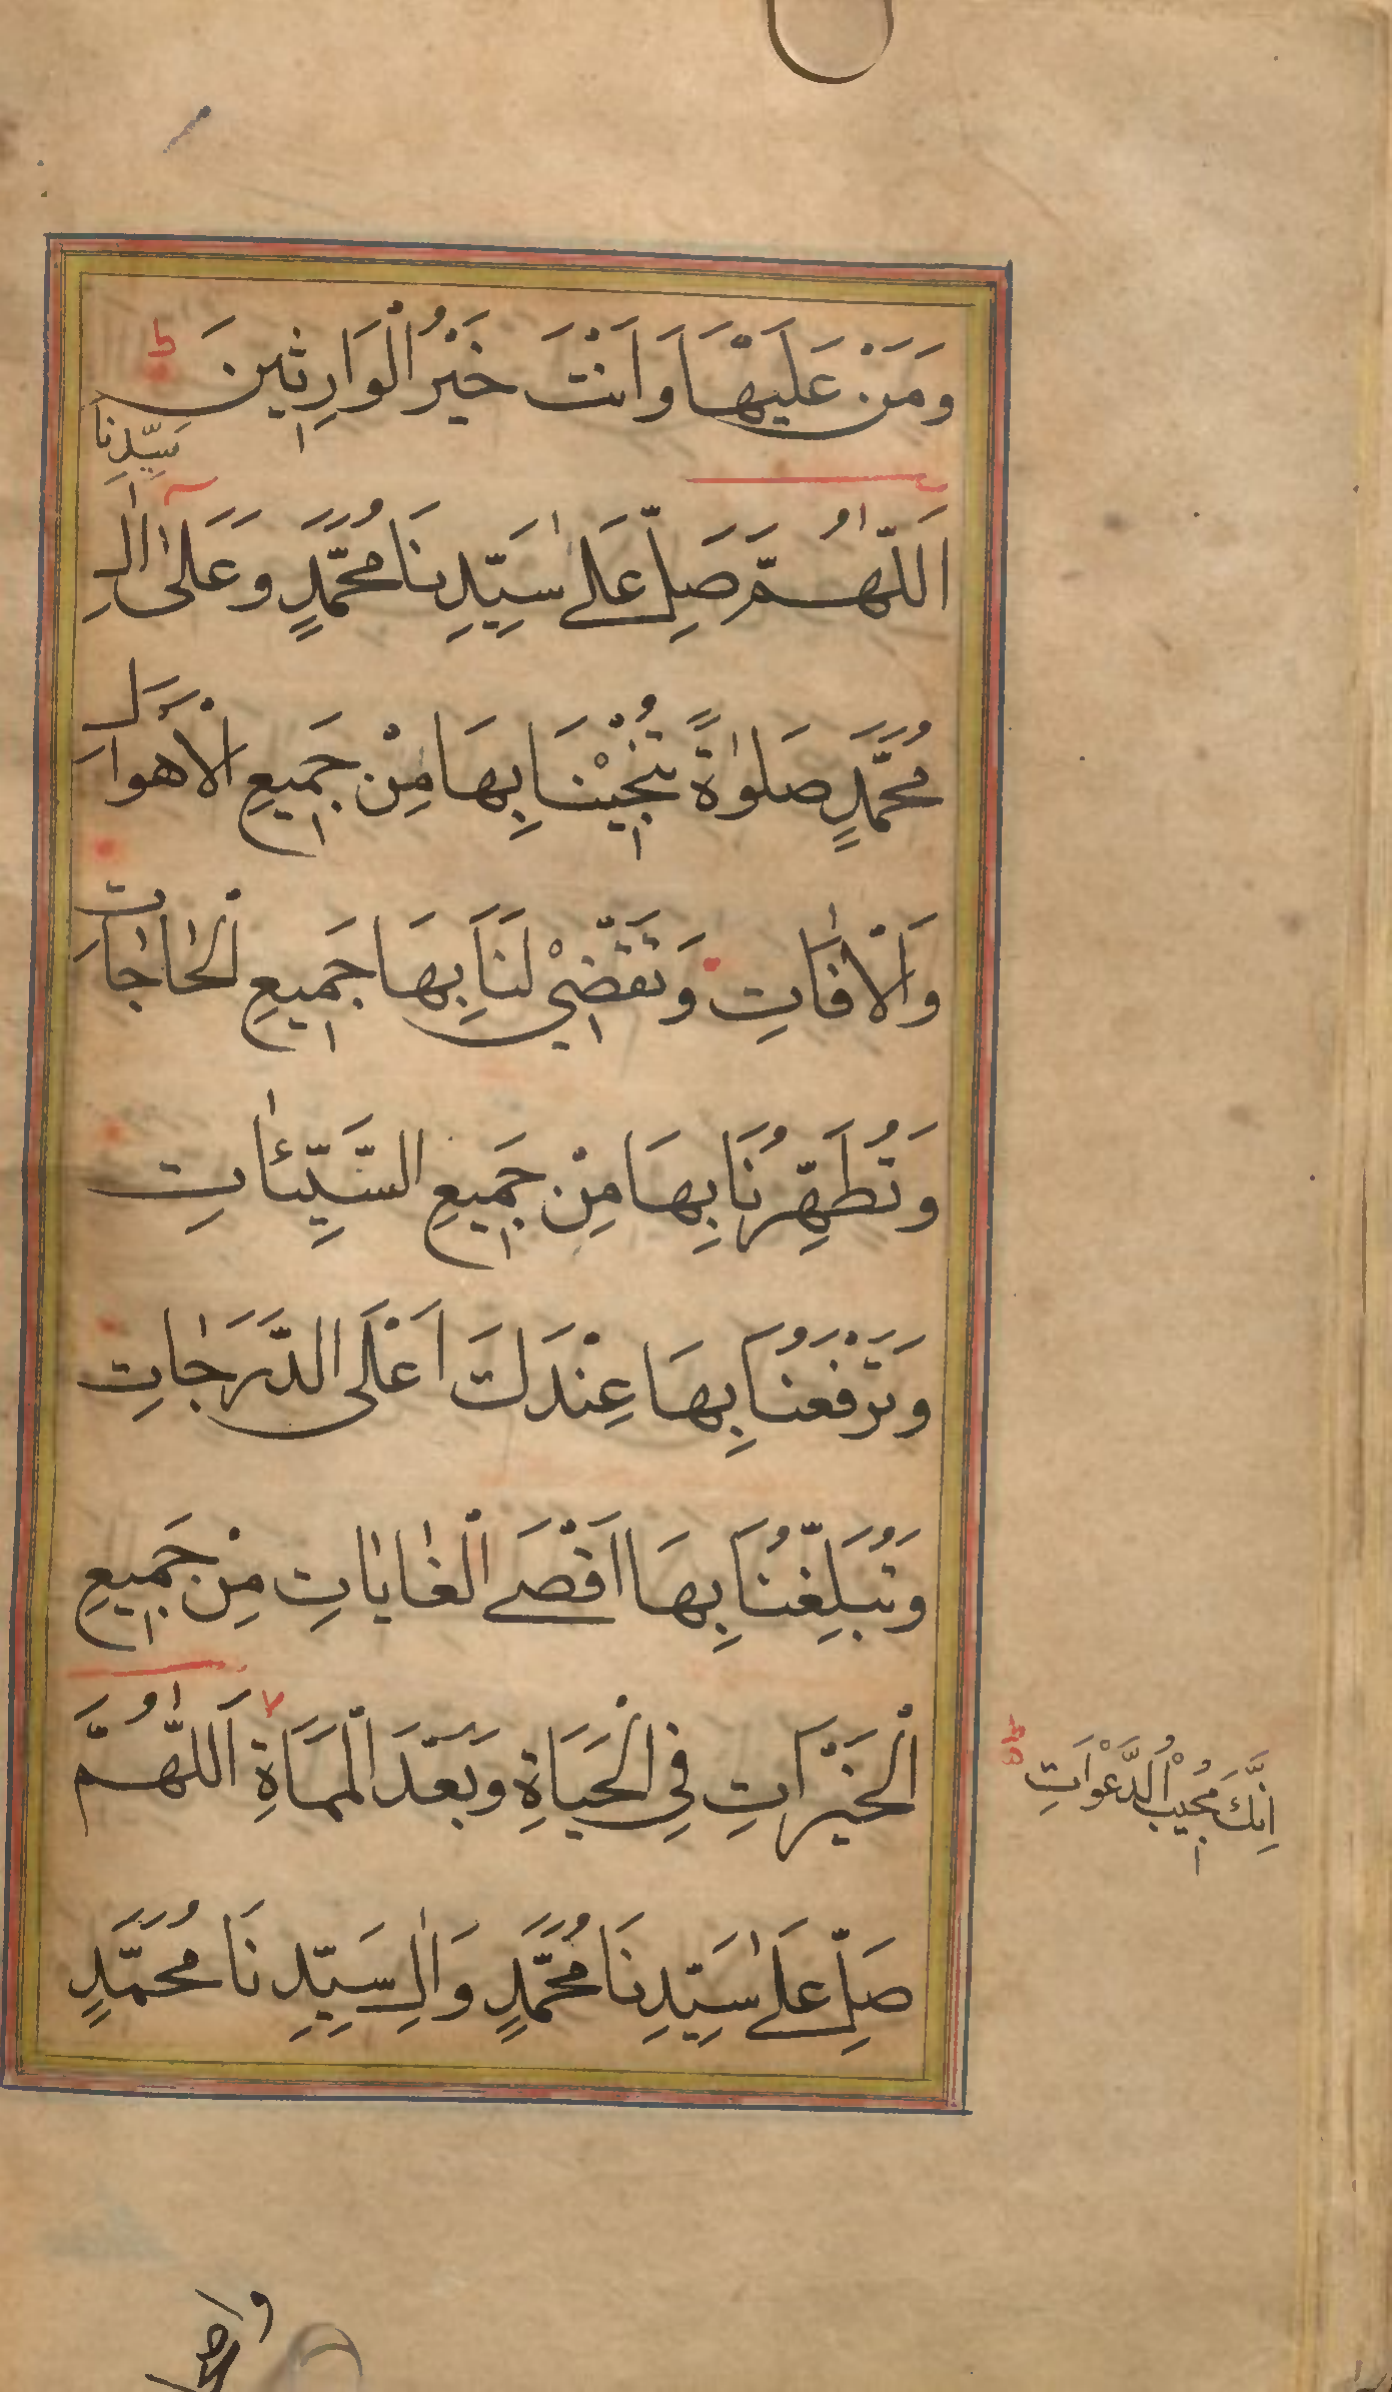 وَمَنْ عَلَيْهَا وَاَنْتَ خَيْرُ الْوَارِثِينَ ط
سَيِّدِنَا
اَللّٰهُمَّ صَلِّ عَلٰى سَيِّدِنَا مُحَمَّدٍ وَعَلٰى اٰلِ
مُحَمَّدٍ صَلٰوةً تُنْجِيْنَا بِهَا مِنْ جَمِيعِ الْاَهْوَالِ
وَالْاٰفَاتِ وَتَقْضِيْ لَنَا بِهَا جَمِيعِ الْحَاجَاتِ
وَتُطَهِّرُنَا بِهَا مِنْ جَمِيعِ السَّيِّئٰاتِ
وَتَرْفَعُنَا بِهَا عِنْدَكَ اَعْلَى الدَّرَجَاتِ
وَتُبَلِّغُنَا بِهَا اَقْصَى الْغَايَاتِ مِنْ جَمِيعِ
الْخَيْرَاتِ فِي الْحَيَاةِ وَبَعْدَ الْمَمَاةِ اَللّٰهُمَّ
اِنَّكَ مُجِيْبُ الدَّعْوَاتِ
صَلِّ عَلٰى سَيِّدِنَا مُحَمَّدٍ وَاٰلِ سَيِّدِنَا مُحَمَّدٍ